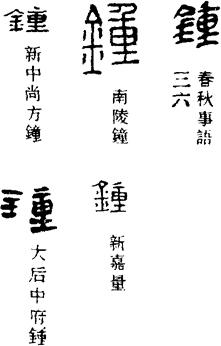 鍾
春秋事語
三六
鍾
南陵鐘
鍾
新中尚方鐘
鍾
新嘉量
鍾
大后中府鍾